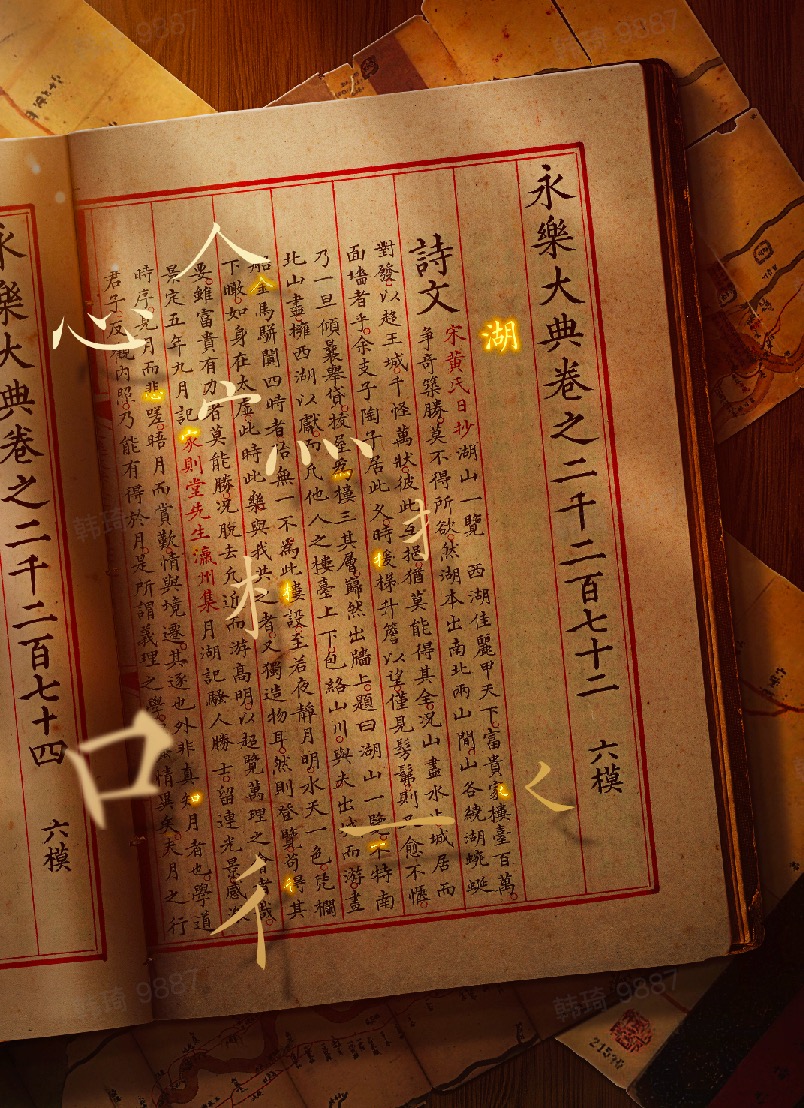 永樂大典卷之二千二百七十二 六模
湖
詩文
宋黃氏日抄湖山一覽 西湖佳麗甲天下富貴家樓臺百萬
爭奇築勝莫不得所欲然湖本出南北兩山閒山谷繞湖蜿蜒
對發以趍王城千怪萬狀彼此互挹猶莫能得其全況山盡水城居而
面墻者乎余友子陶子居此久時援梯升簷以望僅見髣髴則又愈不愜
乃一旦傾囊舉貸投屋為樓三其層巋然出牆上題曰湖山一覽不特南
北山盡擁西湖以獻而凡他人之樓臺上下包絡山川與夫出城而游畫
船金馬駢闐四時者皆無一不為此樓設至若夜靜月明水天一色凭欄
下瞰如身在太虛此時此樂與我共之者又獨造物耳然則登覽苟得其
要雖富貴有力者莫能勝況脫去凡近而游高明以超覽萬理之會者哉
景定五年九月記宋則堂先生瀛州集月湖記騷人勝士留連光景感慨
時序見月而悲嗟晤月而賞歎情與境遷其逐也外非真知月者也學道
君子反觀內照乃能有得於月是所謂義理之學 情異矣夫月之行
人
心
宀
灬
扌
木
口
一
亻
永樂大典卷之二千二百七十四 六模
韩琦 9887
韩琦 9887
韩琦 9887
韩琦 9887
21590